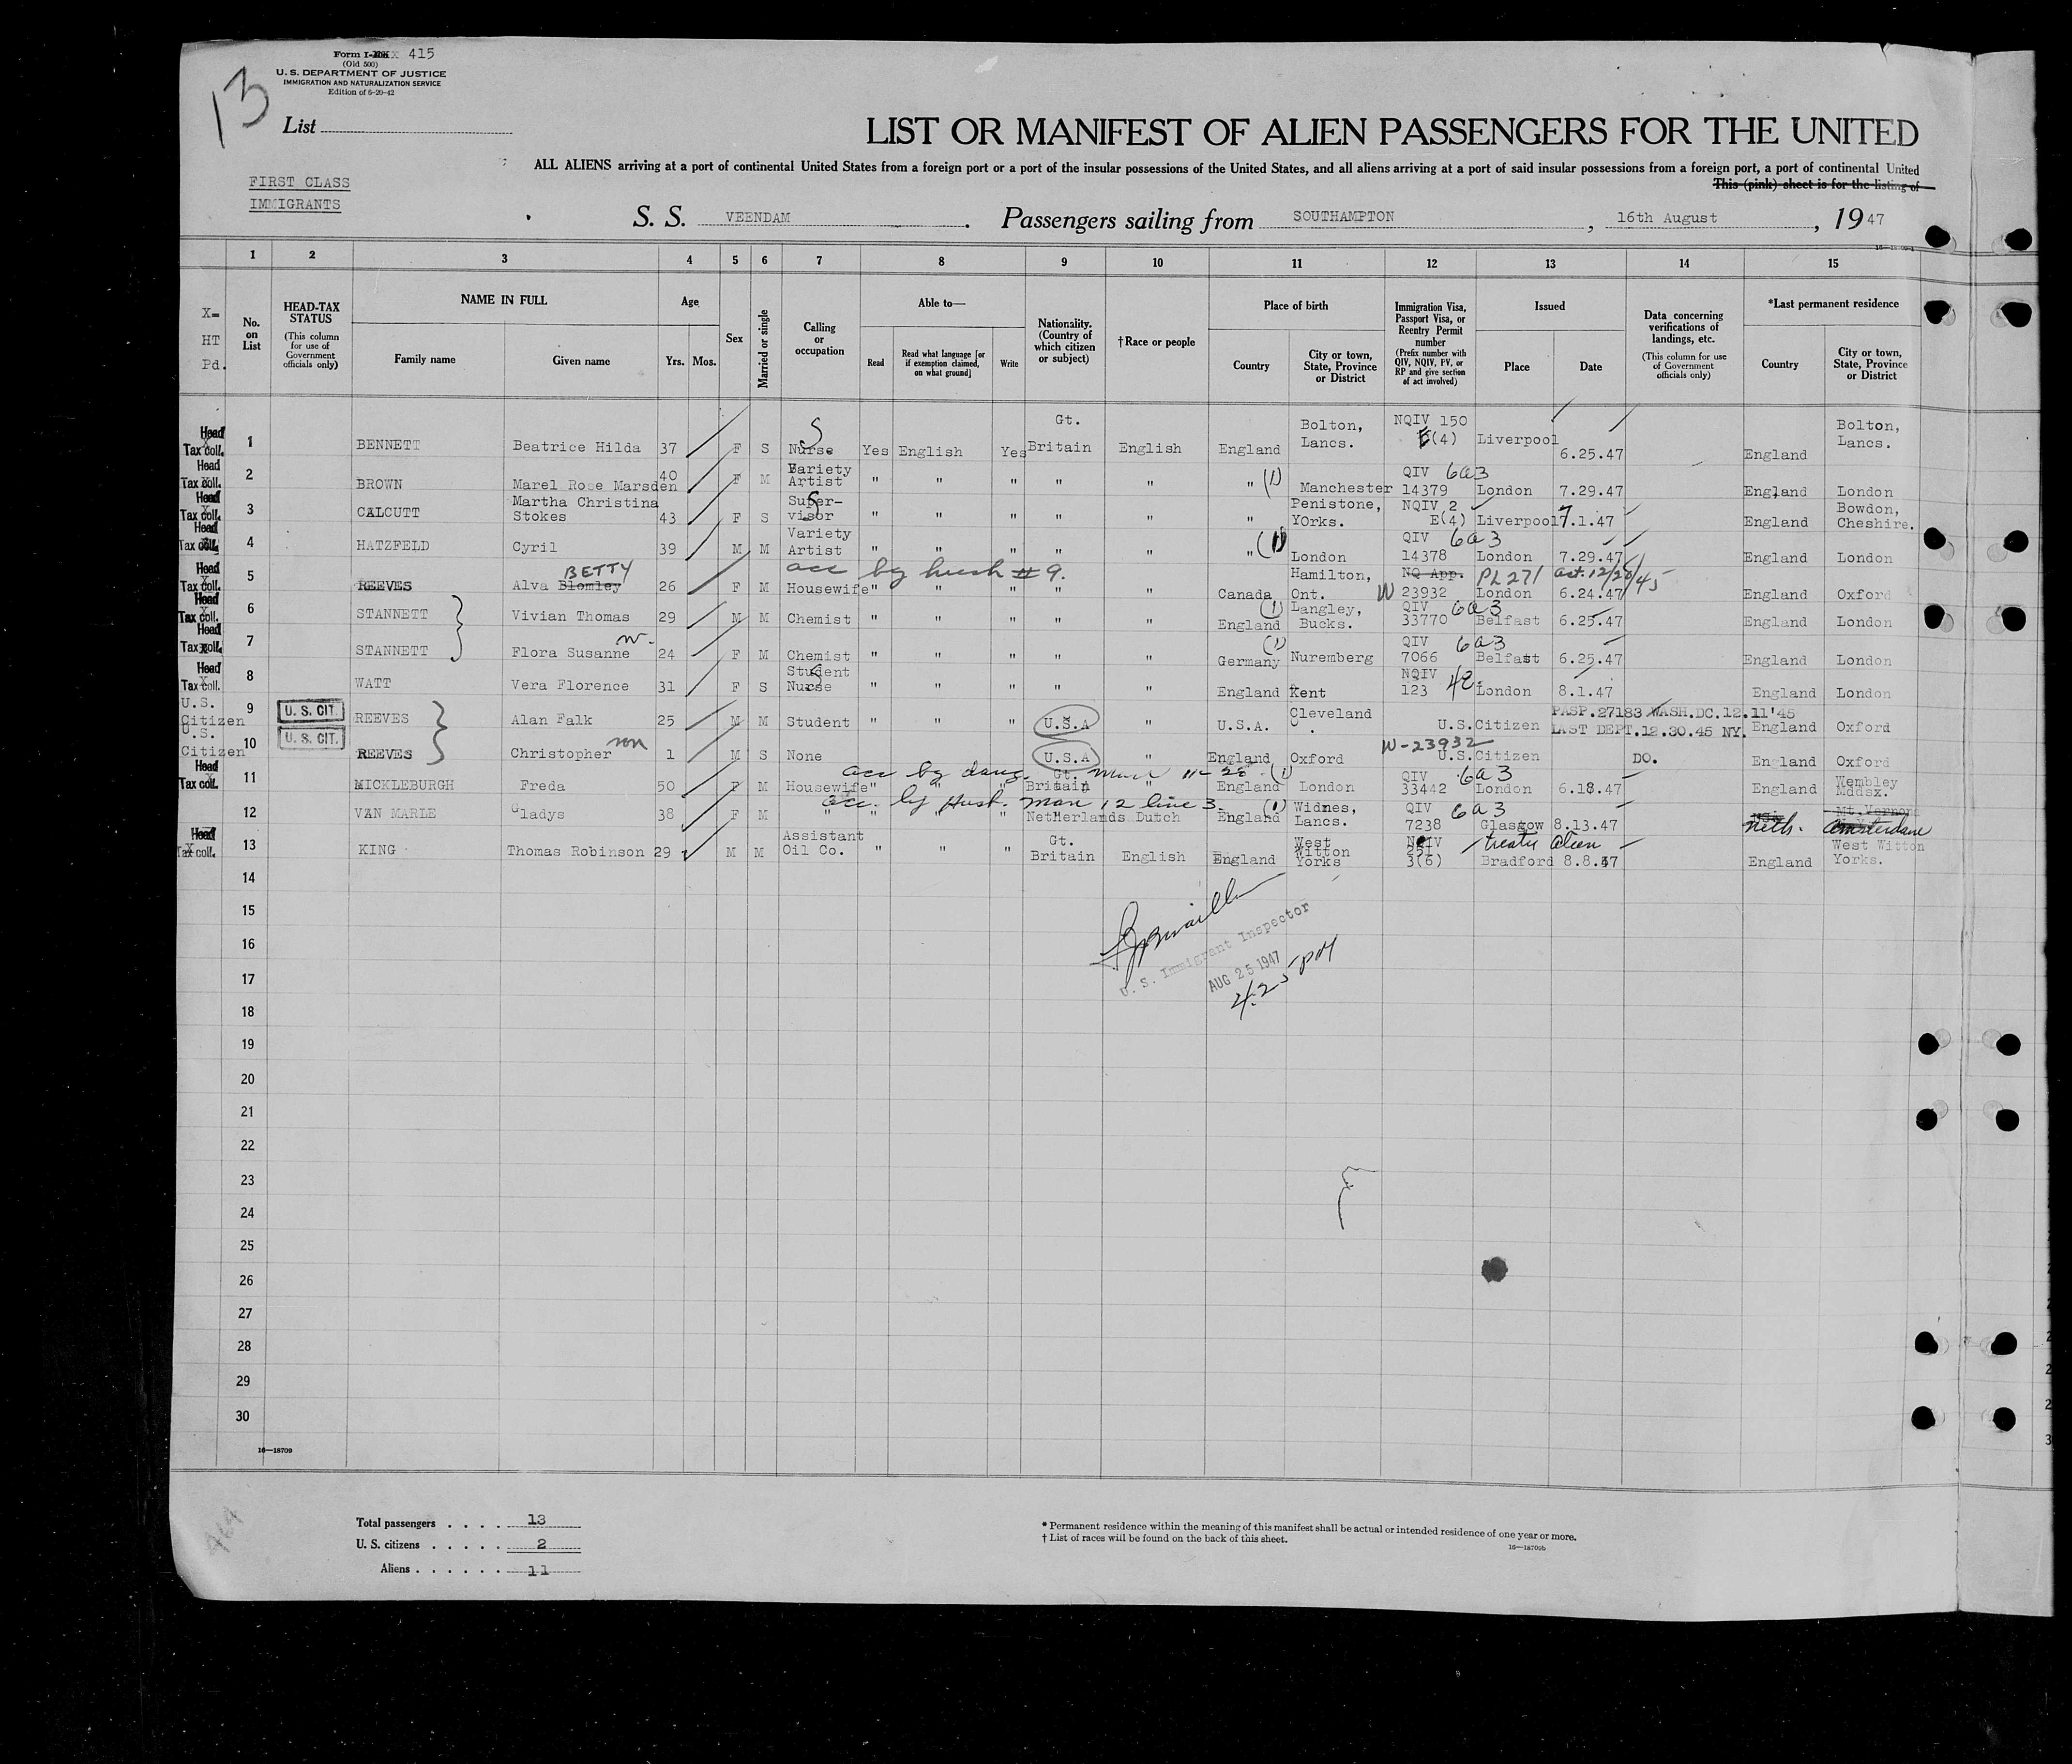 Form I- 415
(Old 500)
U. S. DEPARTMENT OF JUSTICE
IMMIGRATION AND NATURALIZATION SERVICE
Edition of 6-20-42
13
List
LIST OR MANIFEST OF ALIEN PASSENGERS FOR THE UNITED
ALL ALIENS arriving at a port of continental United States from a foreign port or a port of the insular possessions of the United States, and all aliens arriving at a port of said insular possessions from a foreign port, a port of continental United
This (pink) sheet is for the listing of
FIRST CLASS
IMMIGRANTS
S. S. VEENDAM. Passengers sailing from SOUTHAMPTON, 16th August, 1947
1 2 3 4 5 6 7 8 9 10 11 12 13 14 15
X= HT Pd.
No. on List
HEAD-TAX STATUS (This column for use of Government officials only)
NAME IN FULL Family name Given name
Age Yrs. Mos.
Sex
Married or single
Calling or occupation
Able to— Read Read what language [or if exemption claimed, on what ground] Write
Nationality. (Country of which citizen or subject)
†Race or people
Place of birth Country City or town, State, Province or District
Immigration Visa, Passport Visa, or Reentry Permit number (Prefix number with QIV, NQIV, PV, or RP and give section of act involved)
Issued Place Date
Data concerning verifications of landings, etc. (This column for use of Government officials only)
*Last permanent residence Country City or town, State, Province or District
Head Tax coll. 1 BENNETT Beatrice Hilda 37 F S Nurse S Yes English Yes Gt. Britain English England Bolton, Lancs. NQIV 150 E(4) Liverpool 6.25.47 England Bolton, Lancs.
Head Tax coll. 2 BROWN Marel Rose Marsden 40 F M Variety Artist " " " " " " (1) Manchester QIV 6a3 14379 London 7.29.47 England London
Head Tax coll. 3 CALCUTT Martha Christina Stokes 43 F S Supervisor S " " " " " " Penistone, Yorks. NQIV 2 E(4) Liverpool 7.1.47 England Bowdon, Cheshire.
Head Tax coll. 4 HATZFELD Cyril 39 M M Variety Artist " " " " " " (1) London QIV 6a3 14378 London 7.29.47 England London
acc by husb # 9.
Head Tax coll. 5 REEVES Alva Blomley BETTY 26 F M Housewife " " " " " Canada Hamilton, Ont. NQ App. W 23932 PL 271 act. 12/28/45 London 6.24.47 England Oxford
Head Tax coll. 6 STANNETT Vivian Thomas 29 M M Chemist " " " " " (1) England Langley, Bucks. QIV 6a3 33770 Belfast 6.25.47 England London
Head Tax coll. 7 STANNETT Flora Susanne w- 24 F M Chemist " " " " " (1) Germany Nuremberg QIV 6a3 7066 Belfast 6.25.47 England London
Head Tax coll. 8 WATT Vera Florence 31 F S Student Nurse S " " " " " England Kent NQIV 4e. 123 London 8.1.47 England London
U.S. Citizen 9 U. S. CIT. REEVES Alan Falk 25 M M Student " " " U.S.A " U.S.A. Cleveland O. U.S.Citizen PASP.27183 WASH.DC.12.11'45 LAST DEPT.12.30.45 NY. England Oxford
U.S. Citizen 10 U. S. CIT. REEVES Christopher son 1 M S None U.S.A " England Oxford W-23932 U.S.Citizen DO. England Oxford
acc by daug.
Head Tax coll. 11 MICKLEBURGH Freda 50 F M Housewife " " " Gt. Britain " (1) England London QIV 6a3 33442 London 6.18.47 England Wembley Mddsx.
acc. by Husb. man 12 line 3.
12 VAN MARLE Gladys 38 F M " " " " Netherlands Dutch (1) England Widnes, Lancs. QIV 6a3 7238 Glasgow 8.13.47 Mt.Vernon Neth. Amsterdam
Head Tax coll. 13 KING Thomas Robinson 29 M M Assistant Oil Co. " " " Gt. Britain English England West Witton Yorks NQIV 3(6) treaty alien Bradford 8.8.47 England West Witton Yorks.
14
15
16
U. S. Immigrant Inspector
17
AUG 25 1947
4:25 PM
18
19
20
21
22
23
24
25
26
27
28
29
30
16—18709
Total passengers . . . . 13
U. S. citizens . . . . . 2
Aliens . . . . . . 11
* Permanent residence within the meaning of this manifest shall be actual or intended residence of one year or more.
† List of races will be found on the back of this sheet.
16—18709b